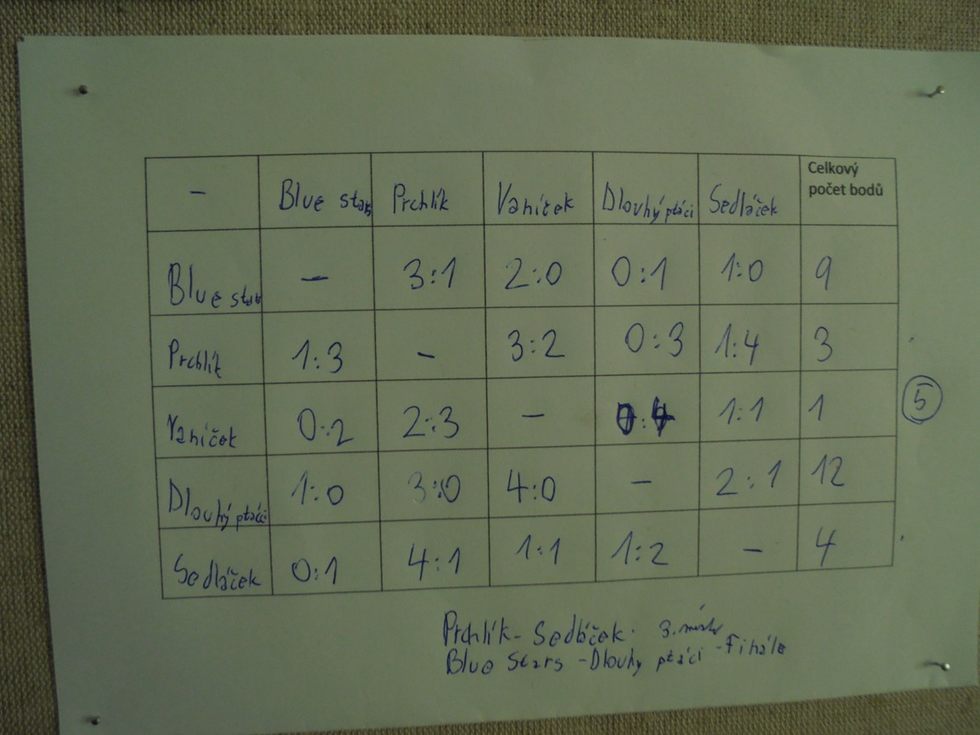 - Blue stars Prchlík Vaníček Dlouhý ptáci Sedláček Celkový počet bodů
Blue stars - 3:1 2:0 0:1 1:0 9
Prchlík 1:3 - 3:2 0:3 1:4 3
Vaníček 0:2 2:3 - 0:4 1:1 1
5
Dlouhý ptáci 1:0 3:0 4:0 - 2:1 12
Sedláček 0:1 4:1 1:1 1:2 - 4
Prchlík - Sedláček 3. místo
Blue Stars - Dlouhý ptáci - Finále